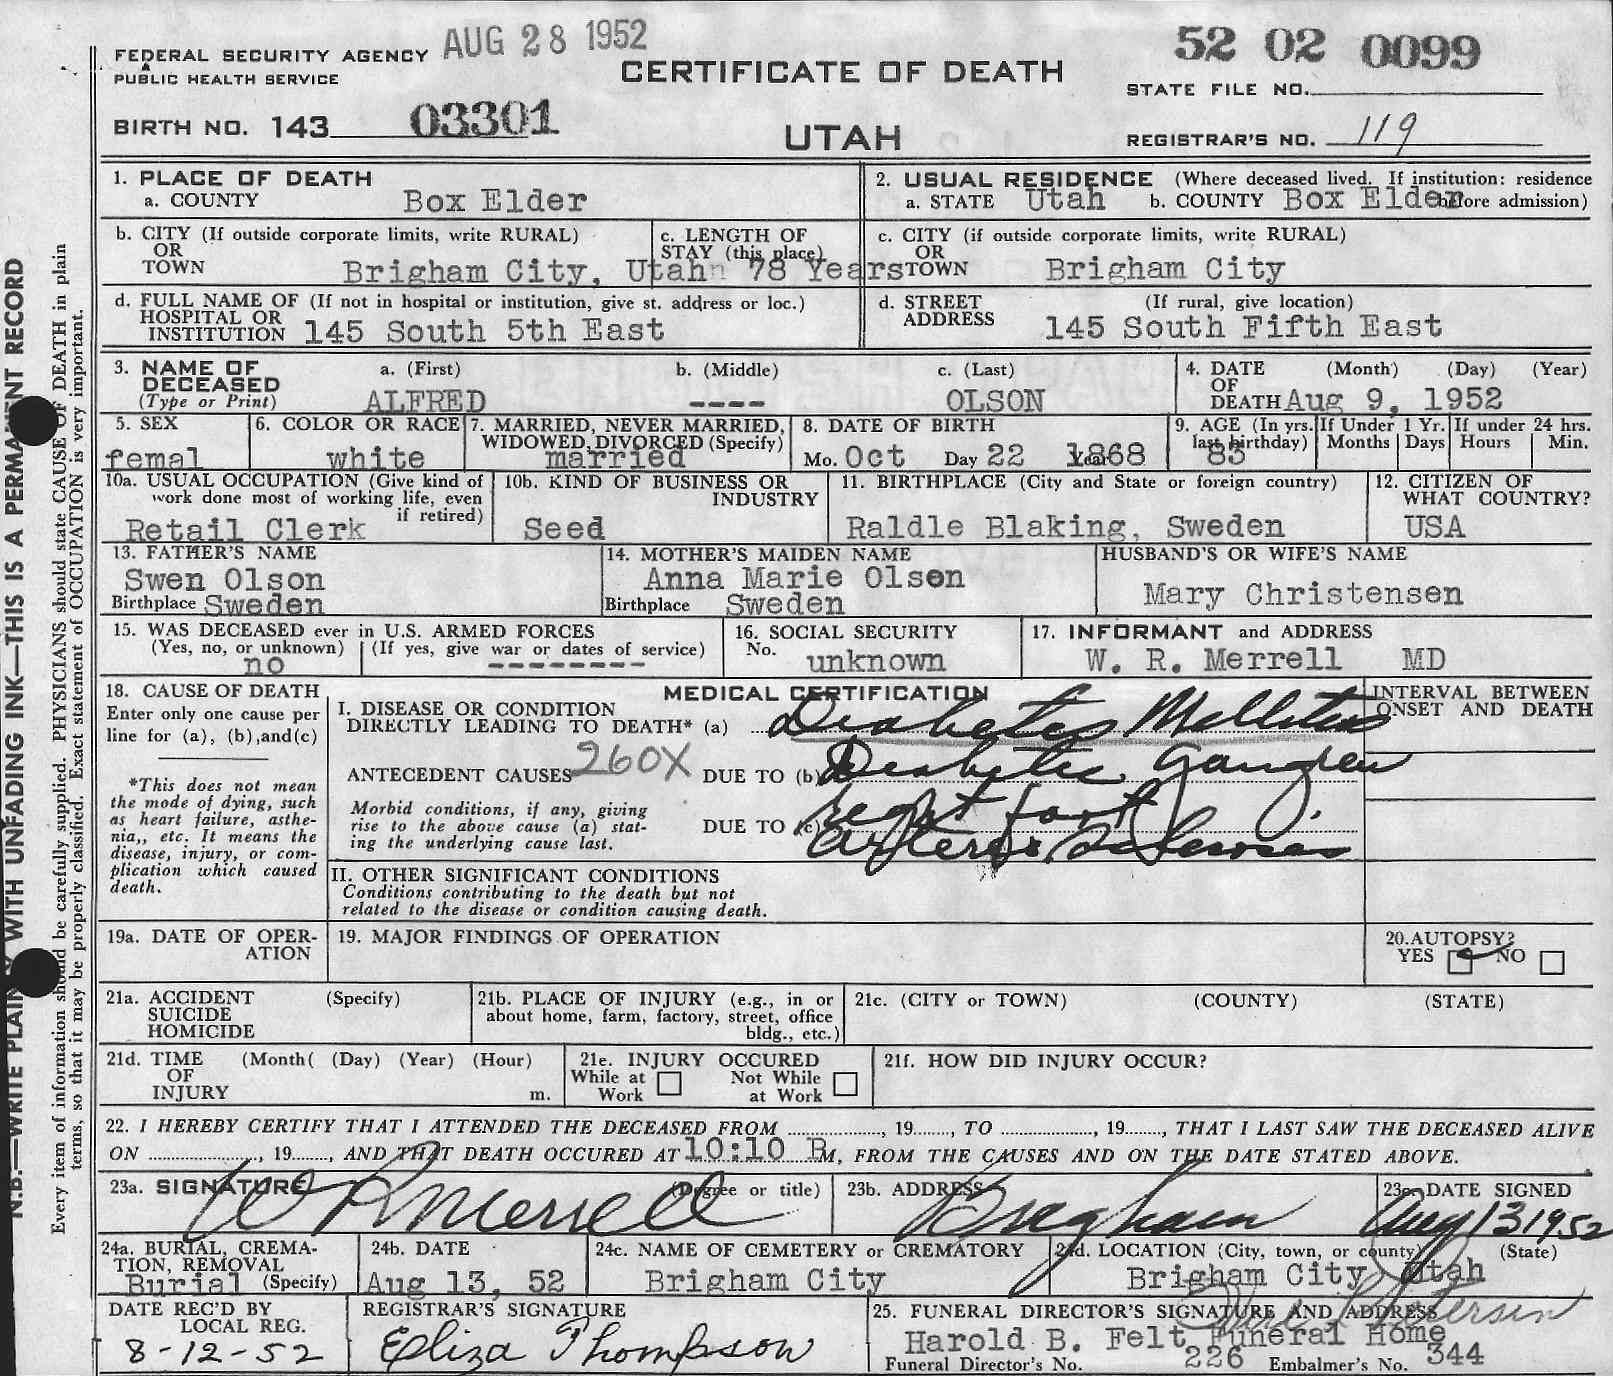 AUG 28 1952
FEDERAL SECURITY AGENCY
PUBLIC HEALTH SERVICE
CERTIFICATE OF DEATH
52 02 0099
STATE FILE NO.
BIRTH NO. 143 03301
UTAH
REGISTRAR'S NO. 119
1. PLACE OF DEATH
a. COUNTY Box Elder
2. USUAL RESIDENCE (Where deceased lived. If institution: residence before admission)
a. STATE Utah b. COUNTY Box Elder
b. CITY (If outside corporate limits, write RURAL)
OR
TOWN Brigham City, Utah
c. LENGTH OF
STAY (this place) 78 Years
c. CITY (if outside corporate limits, write RURAL)
OR
TOWN Brigham City
d. FULL NAME OF (If not in hospital or institution, give st. address or loc.)
HOSPITAL OR
INSTITUTION 145 South 5th East
d. STREET (If rural, give location)
ADDRESS 145 South Fifth East
3. NAME OF a. (First) b. (Middle) c. (Last)
DECEASED
(Type or Print) ALFRED ---- OLSON
4. DATE (Month) (Day) (Year)
OF
DEATH Aug 9, 1952
5. SEX
femal
6. COLOR OR RACE
white
7. MARRIED, NEVER MARRIED,
WIDOWED, DIVORCED (Specify)
married
8. DATE OF BIRTH
Mo. Oct Day 22 Year 1868
9. AGE (In yrs.
last birthday)
83
If Under 1 Yr.
Months Days
If under 24 hrs.
Hours Min.
10a. USUAL OCCUPATION (Give kind of
work done most of working life, even
if retired)
Retail Clerk
10b. KIND OF BUSINESS OR
INDUSTRY
Seed
11. BIRTHPLACE (City and State or foreign country)
Raldle Blaking, Sweden
12. CITIZEN OF
WHAT COUNTRY?
USA
13. FATHER'S NAME
Swen Olson
Birthplace Sweden
14. MOTHER'S MAIDEN NAME
Anna Marie Olsen
Birthplace Sweden
HUSBAND'S OR WIFE'S NAME
Mary Christensen
15. WAS DECEASED ever in U.S. ARMED FORCES
(Yes, no, or unknown) (If yes, give war or dates of service)
no --------
16. SOCIAL SECURITY
No. unknown
17. INFORMANT and ADDRESS
W. R. Merrell MD
18. CAUSE OF DEATH
Enter only one cause per
line for (a), (b), and (c)
*This does not mean
the mode of dying, such
as heart failure, asthe-
nia,, etc. It means the
disease, injury, or com-
plication which caused
death.
MEDICAL CERTIFICATION
I. DISEASE OR CONDITION
DIRECTLY LEADING TO DEATH* (a) Diabetes Mellitus
ANTECEDENT CAUSES 260X DUE TO (b) Diabetic Gangren
right foot
Morbid conditions, if any, giving
rise to the above cause (a) stat-
ing the underlying cause last.
DUE TO (c) Arterio Sclerosis
INTERVAL BETWEEN
ONSET AND DEATH
II. OTHER SIGNIFICANT CONDITIONS
Conditions contributing to the death but not
related to the disease or condition causing death.
19a. DATE OF OPER-
ATION
19. MAJOR FINDINGS OF OPERATION
20. AUTOPSY?
YES NO
21a. ACCIDENT (Specify)
SUICIDE
HOMICIDE
21b. PLACE OF INJURY (e.g., in or
about home, farm, factory, street, office
bldg., etc.)
21c. (CITY or TOWN) (COUNTY) (STATE)
21d. TIME (Month( (Day) (Year) (Hour)
OF
INJURY m.
21e. INJURY OCCURED
While at Work Not While at Work
21f. HOW DID INJURY OCCUR?
22. I HEREBY CERTIFY THAT I ATTENDED THE DECEASED FROM , 19 , TO , 19 , THAT I LAST SAW THE DECEASED ALIVE
ON , 19 , AND THAT DEATH OCCURED AT 10:10 P M, FROM THE CAUSES AND ON THE DATE STATED ABOVE.
23a. SIGNATURE (Degree or title)
W R Merrell
23b. ADDRESS
Brigham
23c. DATE SIGNED
Aug 13 1952
24a. BURIAL, CREMA-
TION, REMOVAL
Burial (Specify)
24b. DATE
Aug 13, 52
24c. NAME OF CEMETERY or CREMATORY
Brigham City
24d. LOCATION (City, town, or county) (State)
Brigham City Utah
DATE REC'D BY
LOCAL REG.
8-12-52
REGISTRAR'S SIGNATURE
Eliza Thompson
25. FUNERAL DIRECTOR'S SIGNATURE AND ADDRESS
Harold B. Felt Funeral Home
Funeral Director's No. 226 Embalmer's No. 344
N.B.—WRITE PLAINLY WITH UNFADING INK—THIS IS A PERMANENT RECORD
Every item of information should be carefully supplied. PHYSICIANS should state CAUSE OF DEATH in plain
terms, so that it may be properly classified. Exact statement of OCCUPATION is very important.